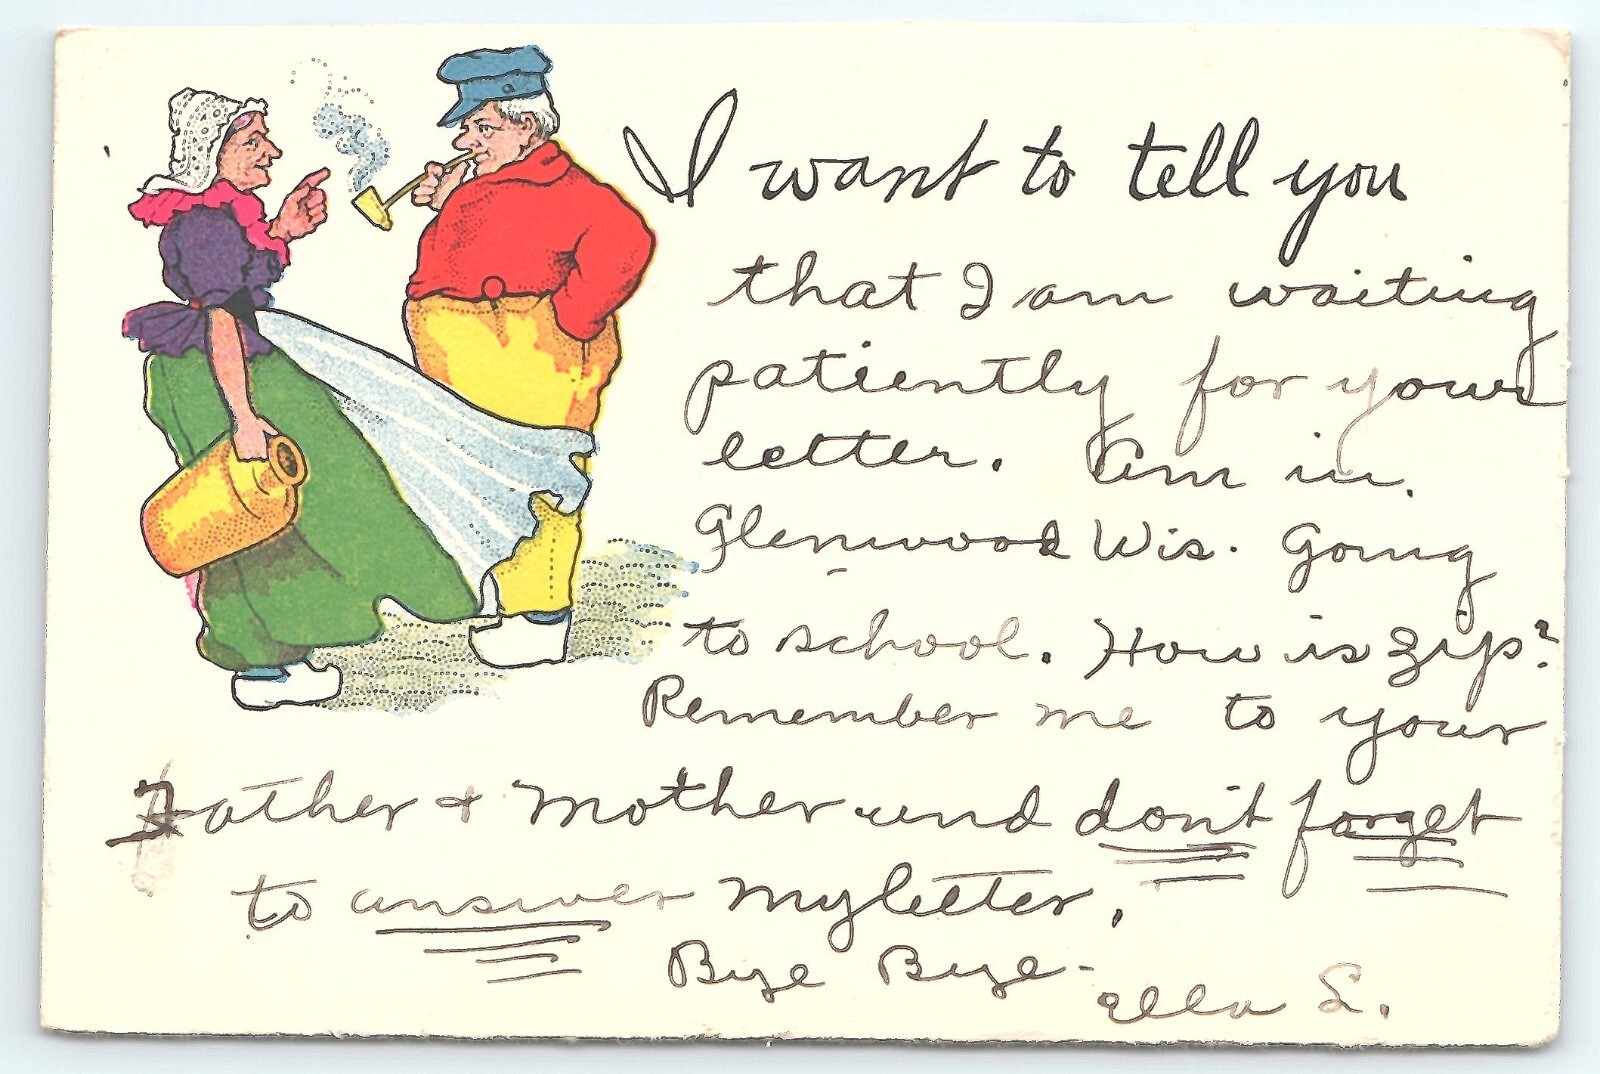 I want to tell you
that I am waiting
patiently for your
letter. Am in.
Glenwood Wis. Going
to school. How is Zip?
Remember me to your
Father + Mother und don't forget
to answer my letter.
Bye Bye -
Ella S.